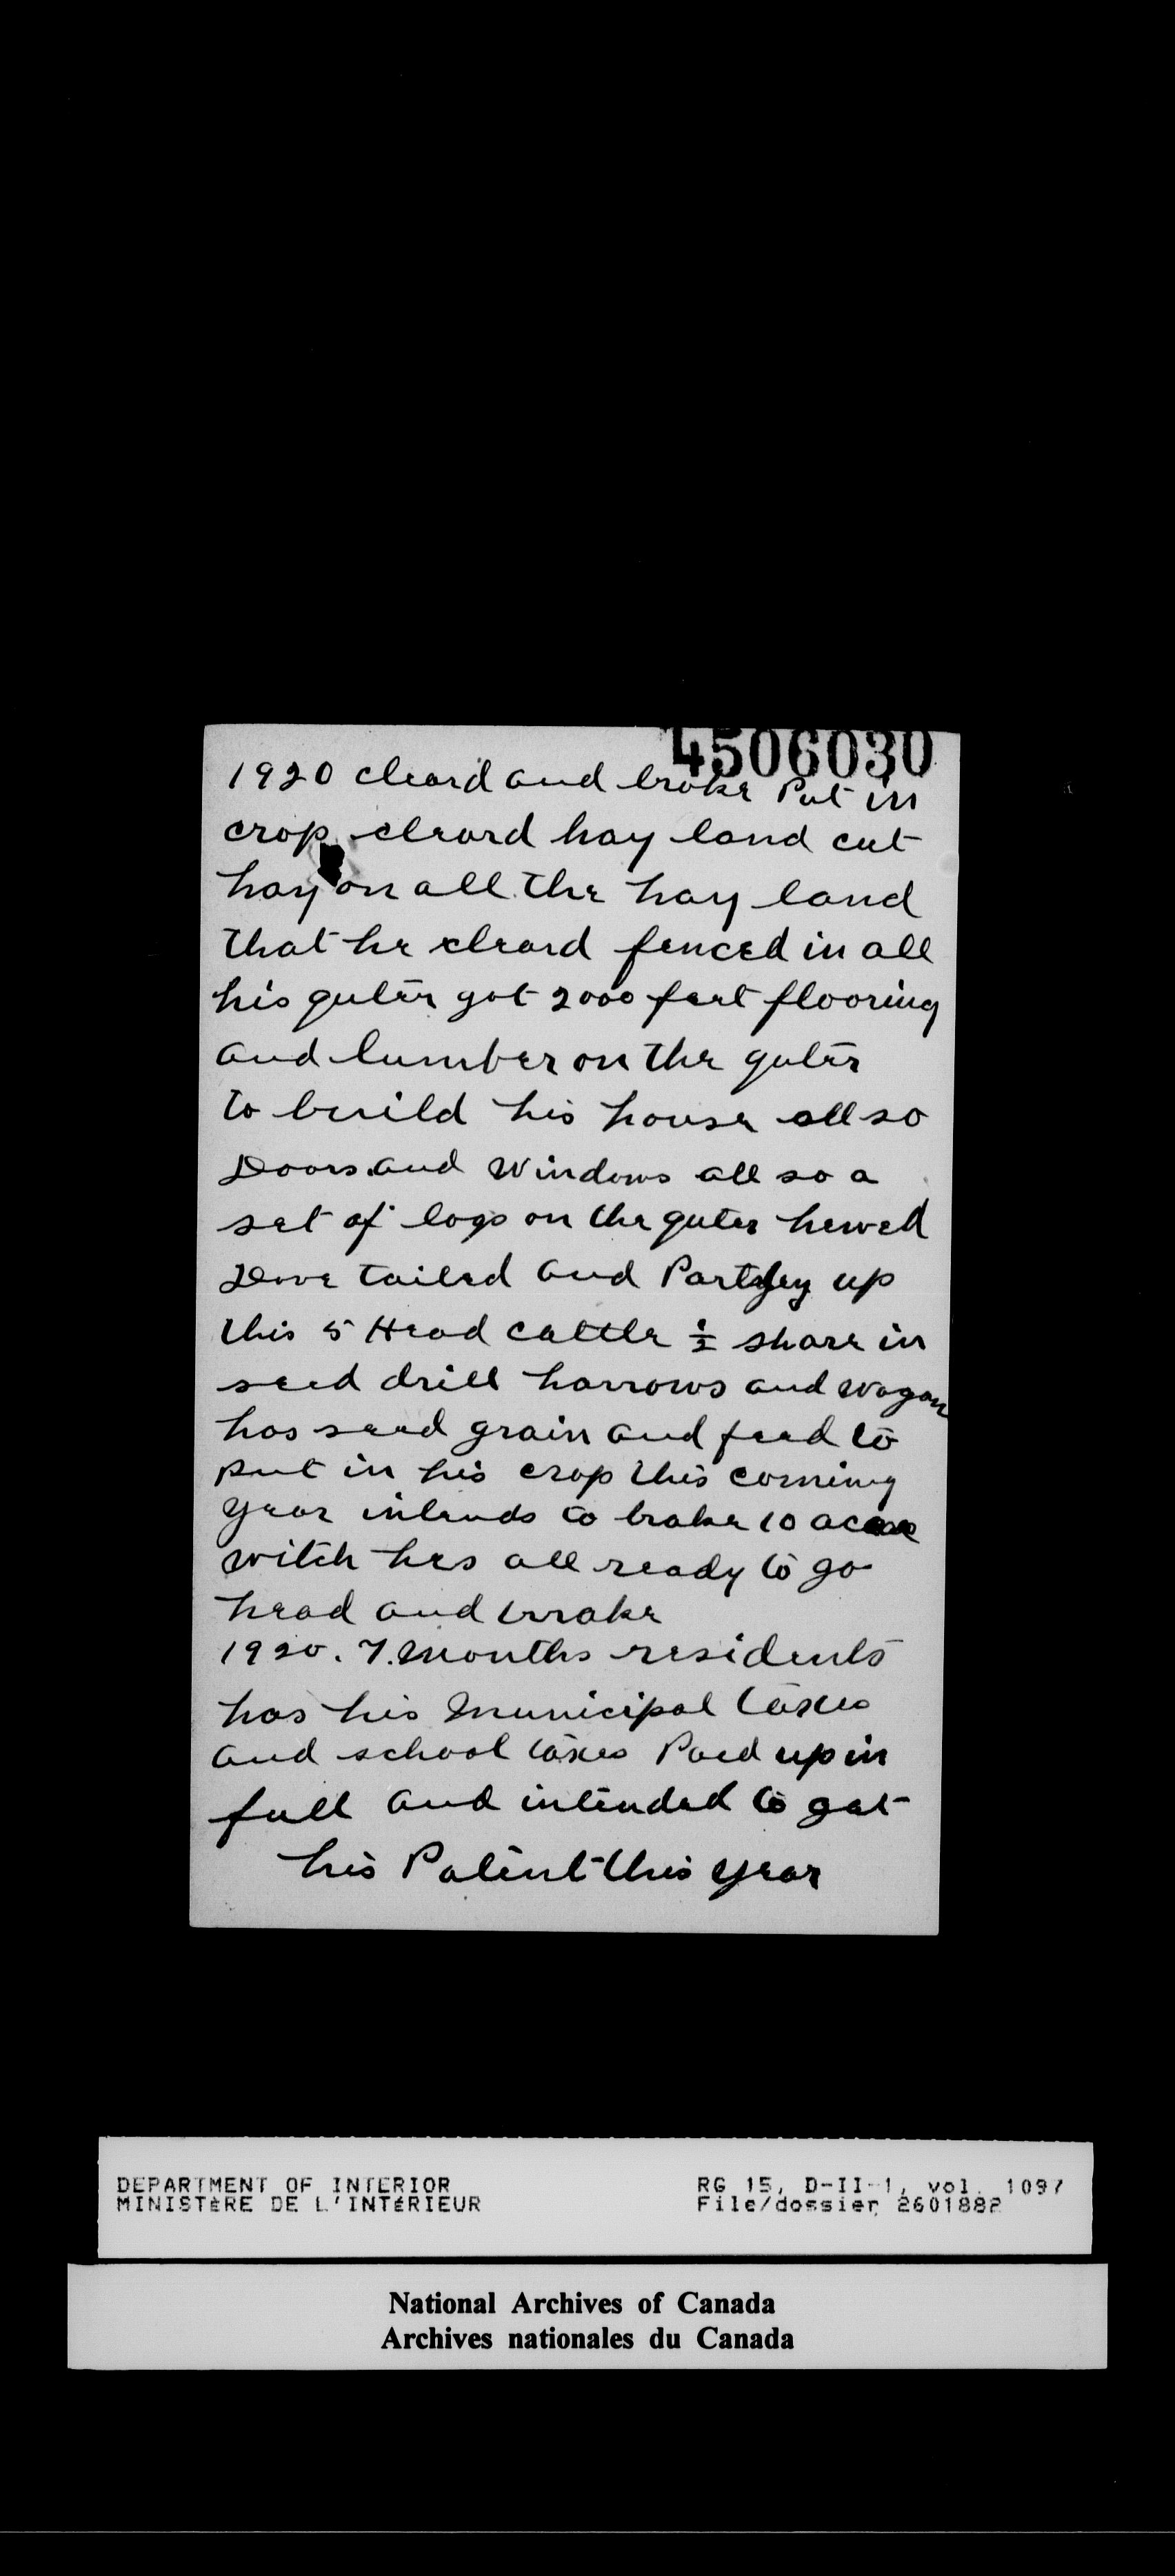 4506030
1920 cleard and broke Put in
crop cleard hay land cut
hay on all the hay land
that he cleard fenced in all
his quter got 2000 feet flooring
and lumber on the quter
to build his house all so
Doors and Windows all so a
set of logs on the quter hewed
Dove tailed and Partley up
this 5 Head cattle ½ share in
seed drill harrows and wagon
has seed grain and feed to
put in his crop this coming
year intends to brake 10
witch hes all ready to go
head and brake
1920. 7. Months residents
has his Municipal taxes
and school taxes Paed up in
full and intended to get
his Patent this year
DEPARTMENT OF INTERIOR
MINISTÈRE DE L'INTÉRIEUR
RG 15, D-II-1, vol. 1097
File/dossier 2601882
National Archives of Canada
Archives nationales du Canada